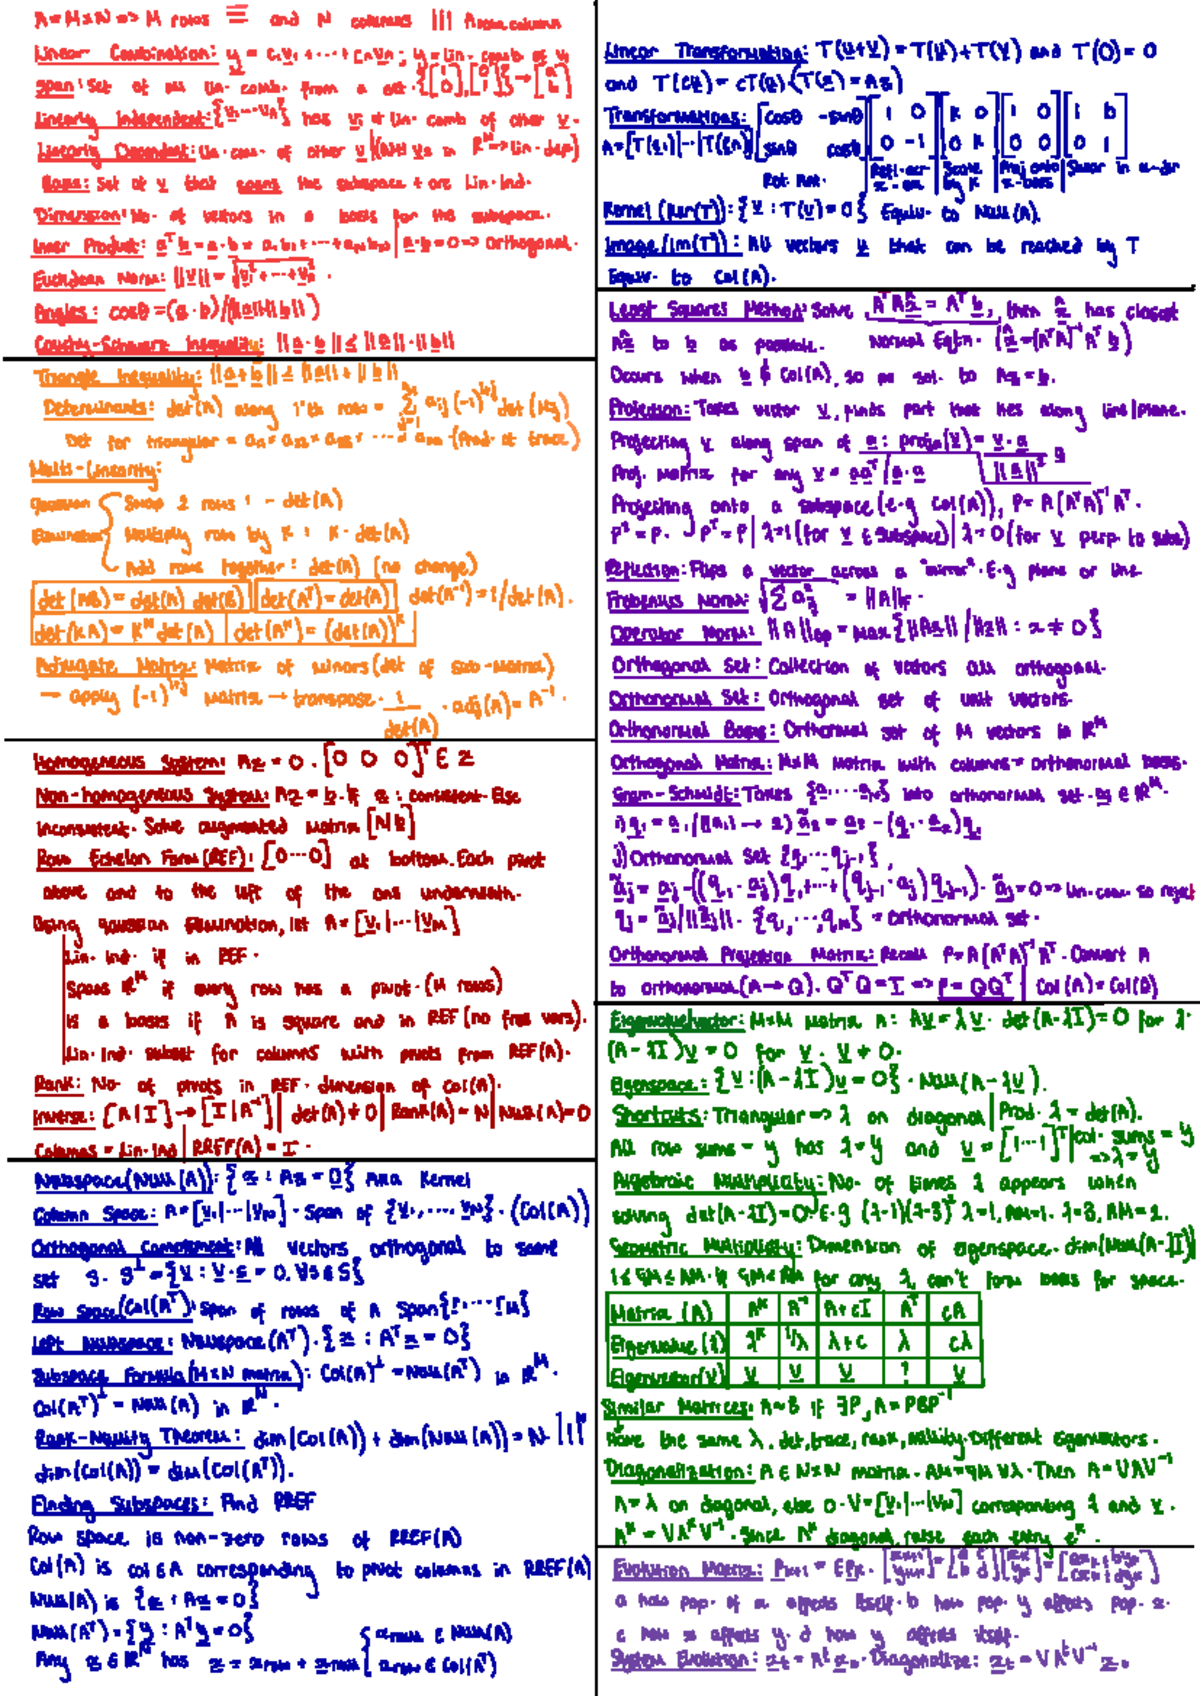 A = M×N => M rows ≡ and N columns ||| A row,column
Linear Combination: y = c₁v₁ + ... + cₙvₙ ; y = lin. comb of vᵢ
Span: Set of all lin. comb. from a set. {[1 0],[0 1]} → [a b]
Linearly Independent: {v₁...vₙ} has vᵢ ≠ lin. comb of other v.
Linearly Dependent: lin. com. of other v
Basis: Set of v that spans the subspace + are Lin. Ind.
Dimension: No. of vectors in a basis for the subspace.
Inner Product: aᵀb = a·b = a₁b₁ + ... + aₙbₙ | a·b = 0 => Orthogonal.
Euclidean Norm: ||v|| = √v₁² + ... + vₙ² .
Angles: cosθ = (a·b)/(||a||||b||)
Cauchy-Schwarz Inequality: ||a·b|| ≤ ||a||·||b||
Triangle Inequality: ||a+b|| ≤ ||a|| + ||b||
Determinants: det(A) along i'th row = Σ aᵢⱼ(-1)ⁱ⁺ʲ det(Mᵢⱼ)
Det for triangular = a₁₁ × a₂₂ × a₃₃ × ... × aₙₙ (Prod. of trace)
Multi-Linearity:
Gaussian Elimination { Swap 2 rows : - det(A)
Multiply row by K : K · det(A)
Add rows together : det(A) (no change)
det(AB) = det(A) det(B) | det(Aᵀ) = det(A) | det(A⁻¹) = 1/det(A).
det(kA) = kᴺ det(A) | det(Aᴷ) = (det(A))ᴷ
Adjugate Matrix: Matrix of minors (det of sub-matrix)
→ apply (-1)ⁱ⁺ʲ matrix → transpose. 1/det(A) · adj(A) = A⁻¹.
Homogeneous System: Ax = 0. [0 0 0]ᵀ ∈ x
Non-homogeneous System: Ax = b. If x : consistent. Else
inconsistent. Solve augmented matrix [A|b]
Row Echelon Form (REF): [0...0] at bottom. Each pivot
above and to the left of the one underneath.
Using gaussian elimination, let A = [v₁|...|vₘ]
Lin. Ind. if in REF.
Spans ℝᴹ if every row has a pivot. (M rows)
Is a basis if A is square and in REF (no free vars).
Lin. Ind. subset for columns with pivots from REF(A).
Rank: No. of pivots in REF. dimension of Col(A).
Inverse: [A|I] → [I|A⁻¹] | det(A) ≠ 0 | Rank(A) = N | Null(A) = 0
Columns = Lin. Ind | RREF(A) = I.
Nullspace (Null(A)): {x : Ax = 0} AKA Kernel
Column Space: A = [v₁|...|vₙ]. Span of {v₁,..., vₙ}. (Col(A))
Orthogonal Complement: All vectors orthogonal to some
set S. S⊥ = {v : v·s = 0, ∀s∈S}
Row Space (Col(Aᵀ)): Span of rows of A Span{r₁...rₘ}
Left Nullspace: Nullspace(Aᵀ). {x : Aᵀx = 0}
Subspace Formula (M×N matrix): Col(A)⊥ = Null(Aᵀ) in ℝᴹ.
Col(Aᵀ)⊥ = Null(A) in ℝᴺ.
Rank-Nullity Theorem: dim(Col(A)) + dim(Null(A)) = N
dim(Col(A)) = dim(Col(Aᵀ)).
Finding Subspaces: Find RREF
Row space is non-zero rows of RREF(A)
Col(A) is col ∈ A corresponding to pivot columns in RREF(A)
Null(A) is {x : Ax = 0}
Null(Aᵀ) = {y : Aᵀy = 0}
Any x ∈ ℝᴺ has x = x_row + x_null { x_null ∈ Null(A)
x_row ∈ Col(Aᵀ)
Linear Transformation: T(u+v) = T(u) + T(v) and T(0) = 0
and T(cu) = cT(u) (T(x) = Ax)
Transformations: [cosθ -sinθ | [1 0 | [k 0 | [1 0 | [1 b
A = [T(e₁)|...|T(eₙ)] sinθ cosθ] 0 -1] 0 k] 0 0] 0 1]
Rot. Ant. | Refl. acr x-ax | Scale by k | Proj onto x-axis | Shear in x-dir
Kernel (Ker(T)): {v : T(v) = 0} Equiv. to Null(A).
Image (Im(T)): All vectors v that can be reached by T
Equiv. to Col(A).
Least Squares Method: Solve AᵀAx̂ = Aᵀb, then x̂ has closest
Ax̂ to b as possible. Normal Eqtn. (x̂ = (AᵀA)⁻¹Aᵀb)
Occurs when b ∉ Col(A), so no sol. to Ax = b.
Projection: Takes vector v, finds part that lies along line/plane.
Projecting v along span of a : projₐ(v) = v·a/||a||² a
Proj. matrix for any v = aaᵀ/a·a
Projecting onto a subspace (e.g Col(A)), P = A(AᵀA)⁻¹Aᵀ.
P² = P. Pᵀ = P | λ=1 (for v ∈ Subspace) | λ=0 (for v perp. to subs)
Reflection: Flips a vector across a "mirror". E.g plane or line.
Frobenius Norm: √Σ aᵢⱼ² = ||A||F.
Operator Norm: ||A||op = Max {||Ax||/||x|| : x ≠ 0}
Orthogonal Set: Collection of vectors all orthogonal.
Orthonormal Set: Orthogonal set of unit vectors.
Orthonormal Basis: Orthormal set of M vectors in ℝᴹ
Orthogonal Matrix: M×M Matrix with columns = orthonormal basis.
Gram-Schmidt: Takes {a₁...aₙ} into orthonormal set. aⱼ ∈ ℝᴹ.
1) q₁ = a₁/||a₁|| → 2) ã₂ = a₂ - (q₁·a₂)q₁
j) Orthonormal set {q₁...qⱼ₋₁},
ãⱼ = aⱼ - ((q₁·aⱼ)q₁ + ... + (qⱼ₋₁·aⱼ)qⱼ₋₁). ãⱼ = 0 => lin. com. so reject
qⱼ = ãⱼ/||ãⱼ||. {q₁,...,qₙ} = orthonormal set.
Orthonormal Projection Matrix: Recall P = A(AᵀA)⁻¹Aᵀ. Convert A
to orthonormal (A → Q). QᵀQ = I => P = QQᵀ | Col(A) = Col(Q)
Eigenvalue/vector: M×M Matrix A: Av = λv. det(A-λI) = 0 for λ.
(A-λI)v = 0 for v. v ≠ 0.
Eigenspace: {v : (A-λI)v = 0}. Null(A-λv).
Shortcuts: Triangular => λ on diagonal | Prod. λ = det(A).
All row sums = y has λ = y and v = [1...1]ᵀ | col. sums = y => λ = y
Algebraic Multiplicity: No. of times λ appears when
solving det(A-λI) = 0. E.g (λ-1)(λ-3)² λ=1, AM=1. λ=3, AM=2.
Geometric Multiplicity: Dimension of eigenspace. dim(Null(A-λI))
1 ≤ GM ≤ AM. If GM < AM for any λ, can't form basis for space.
Matrix (A) | Aᴷ | A⁻¹ | A+cI | Aᵀ | cA
Eigenvalue (λ) | λᴷ | 1/λ | λ+c | λ | cλ
Eigenvector (v) | v | v | v | ? | v
Similar Matrices: A~B if ∃P, A = PBP⁻¹
Have the same λ, det, trace, rank, nullity. Different eigenvectors.
Diagonalization: A ∈ N×N matrix. AM = GM ∀λ. Then A = VΛV⁻¹
Λ = λ on diagonal, else 0. V = [v₁|...|vₙ] corresponding λ and v.
Aᴷ = VΛᴷV⁻¹. Since Λᴷ diagonal, raise each entry
Evolution Matrix: Pₖ₊₁ = EPₖ.
a how pop. of x affects itself. b how pop. y affects pop. x.
c how x affects y. d how y affects itself.
System Evolution: xₜ = Aᵗx₀. Diagonalize: xₜ = VΛᵗV⁻¹x₀